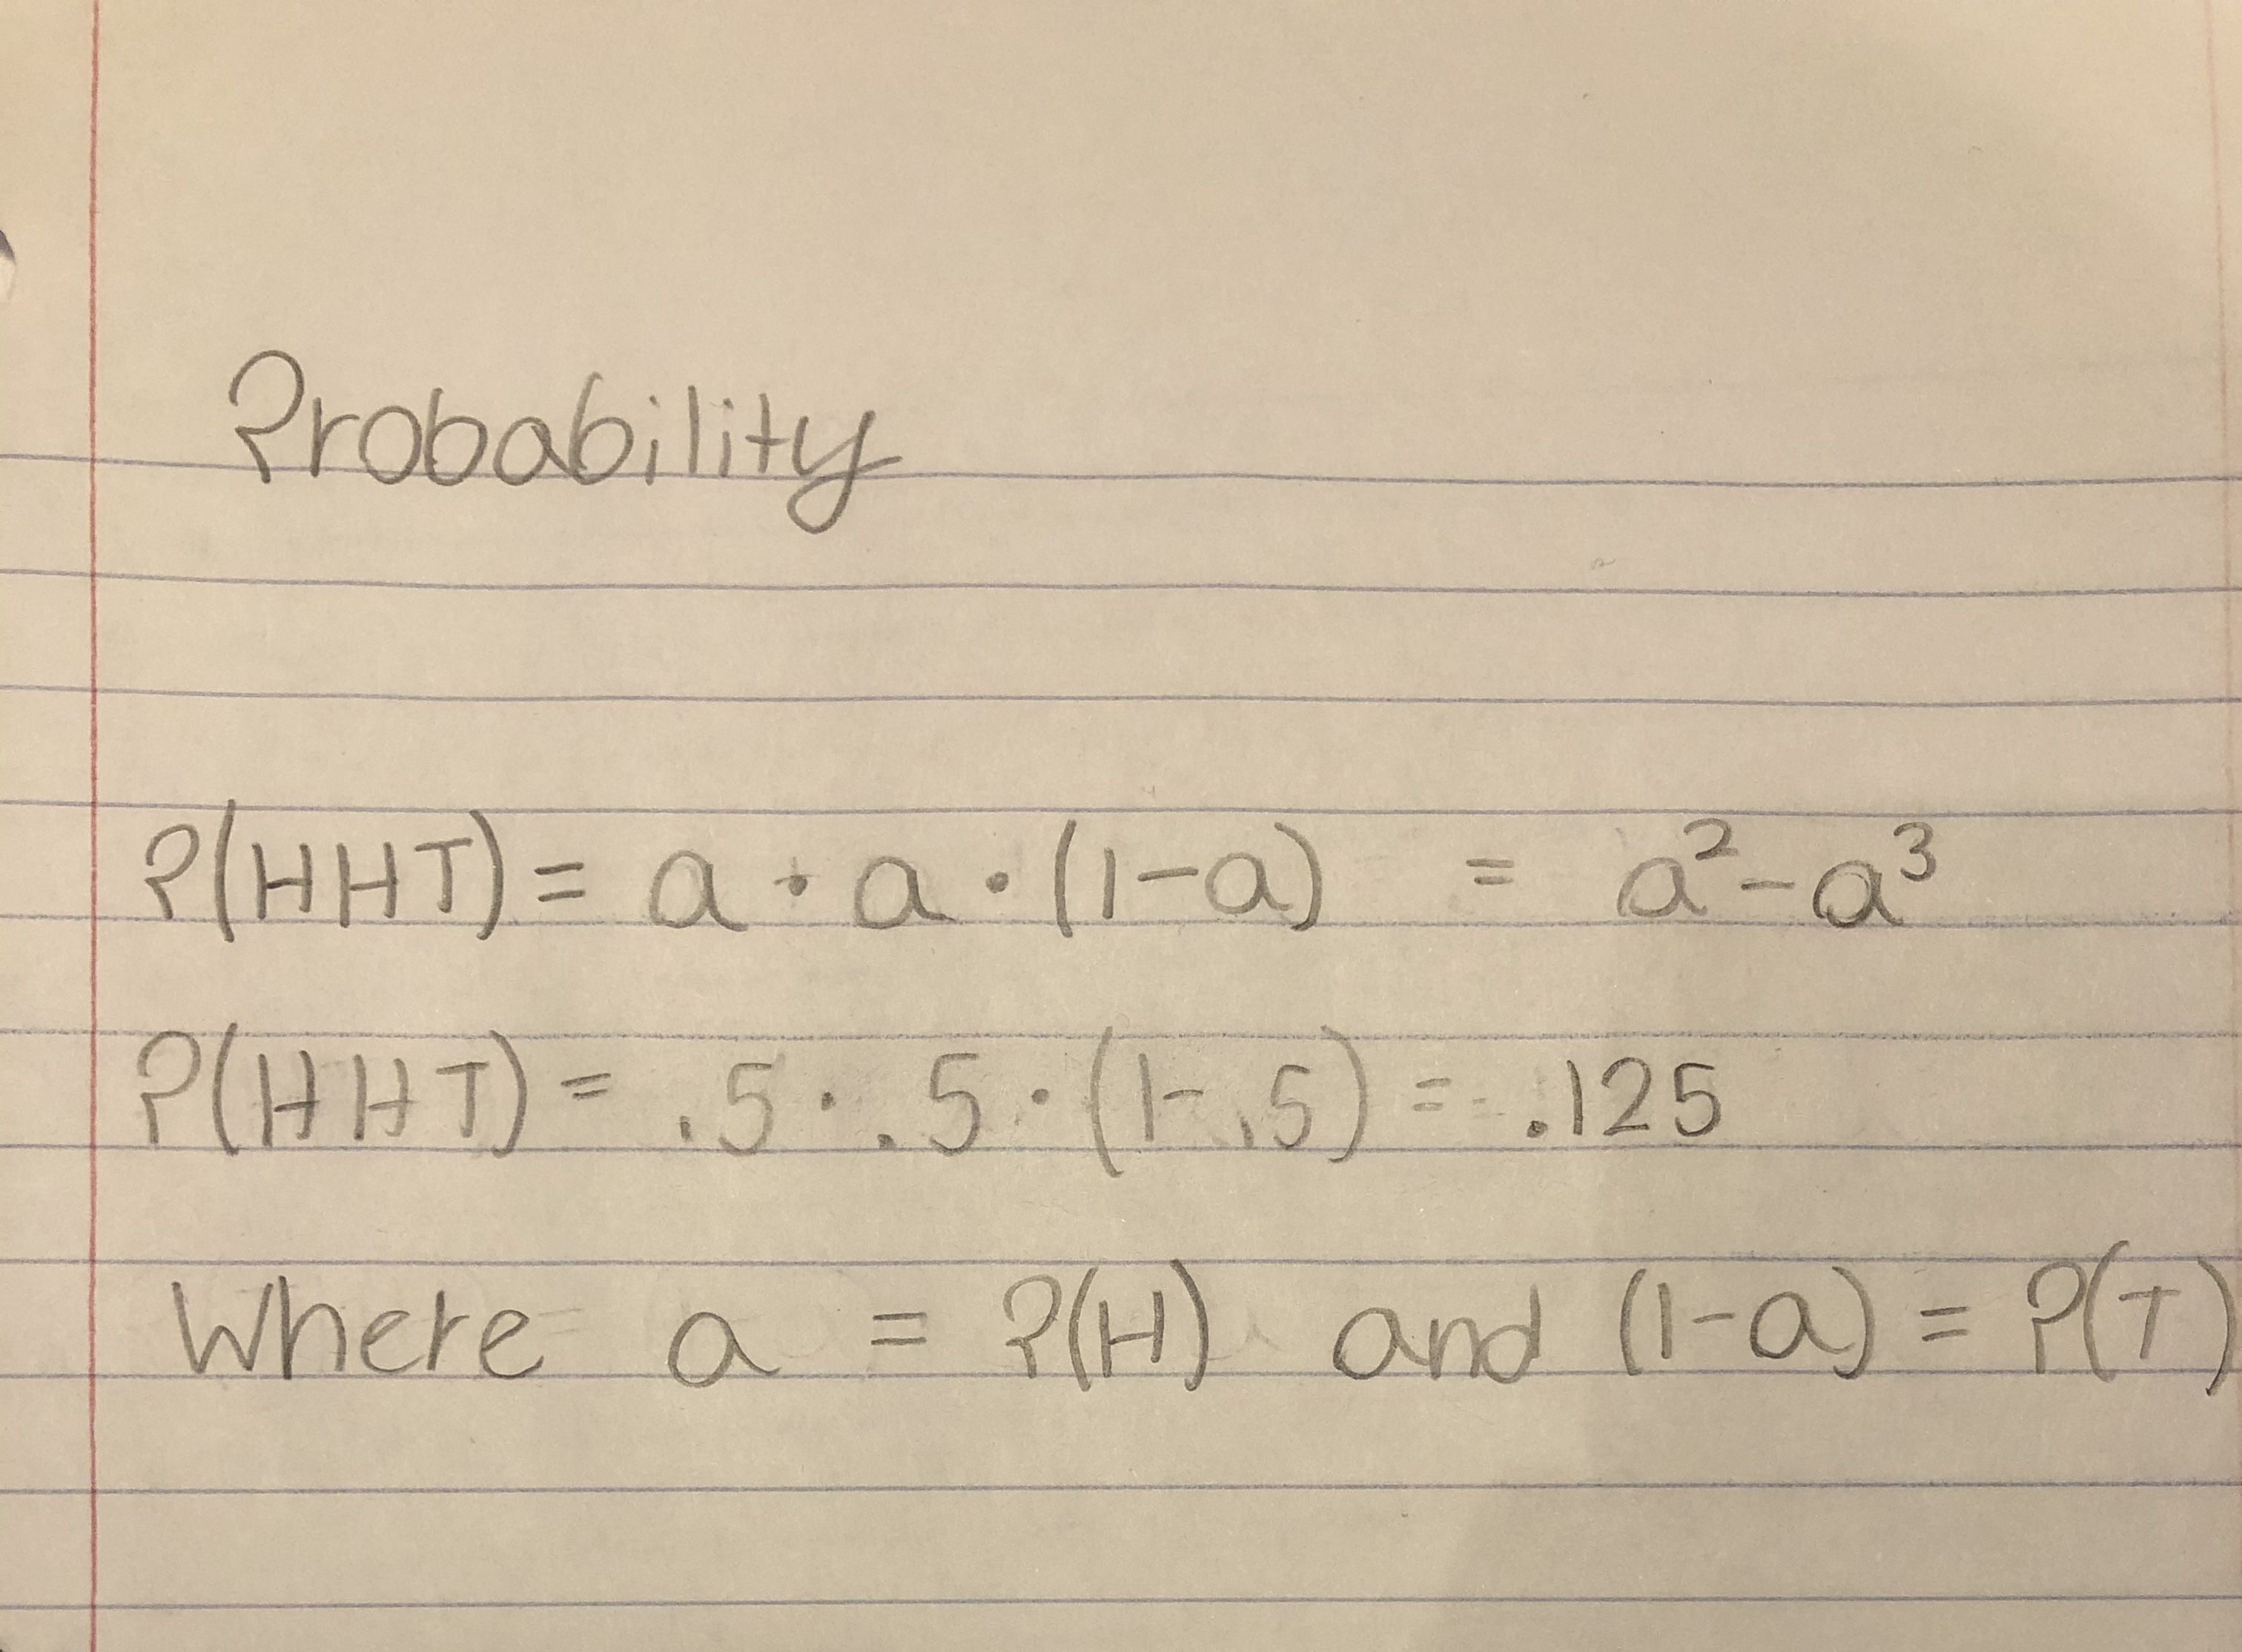 Probability
P(HHT) = a · a · (1-a) = a²-a³
P(HHT) = .5 · .5 · (1- .5) = .125
Where a = P(H) and (1-a) = P(T)